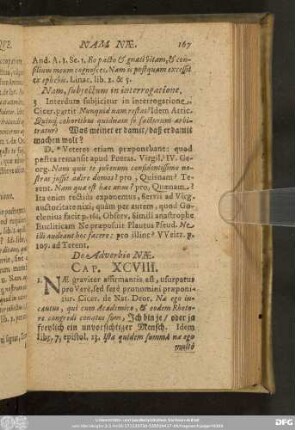 NAM NÆ. 167
And. A. 1. Sc. 1. Eo pacto & gnati vitam, & con-
silium meum cognosces. Nam is postquam excessit
ex ephebis. Linac. lib. 2. & 5.
Nam, subjectum in interrogatione.
3 Interdum subjicitur in interrogatione,
Cicer. partit Nunquid nam restat? Idem Attic.
Quinq; cohortibus quidnam se facturum arbi-
tratur? Was meinet er damit/ daß er damit
machen wolt?
D. * Veteres etiam præponebant: quod
postea remansit apud Poëtas. Virgil. IV. Ge-
org. Nam quis te juvenum confidentissime no-
stras jussit adire domos? pro, Quisnam? Te-
rent. Nam quæ est hæc anus? pro, Quænam?
Ita enim rectius exponemus, Servii ac Virg.
auctoritate nixi, quàm per autem, quod Go-
clenius facit p. 161, Observ. Simili anastrophe
Encliticam Ne præposuit Plautus Pseud. Ne
illi audeant hoc facere: pro illine? VVeitz. p.
109. ad Terent.
De Adverbio NÆ.
CAP. XCVIII.
1. NÆ graviter affirmantis est, usurpatur
pro Verè, sed ferè pronomini præponi-
tur. Cicer. de Nat. Deor. Na ego in-
cautus, qui cum Academico, & eodem Rheto-
re congredi conatus sim, Ich bin je/ oder ja
freylich ein unvorsichtiger Mensch. Idem
lib. 7, epistol. 13. Ista quidem summâ na ego